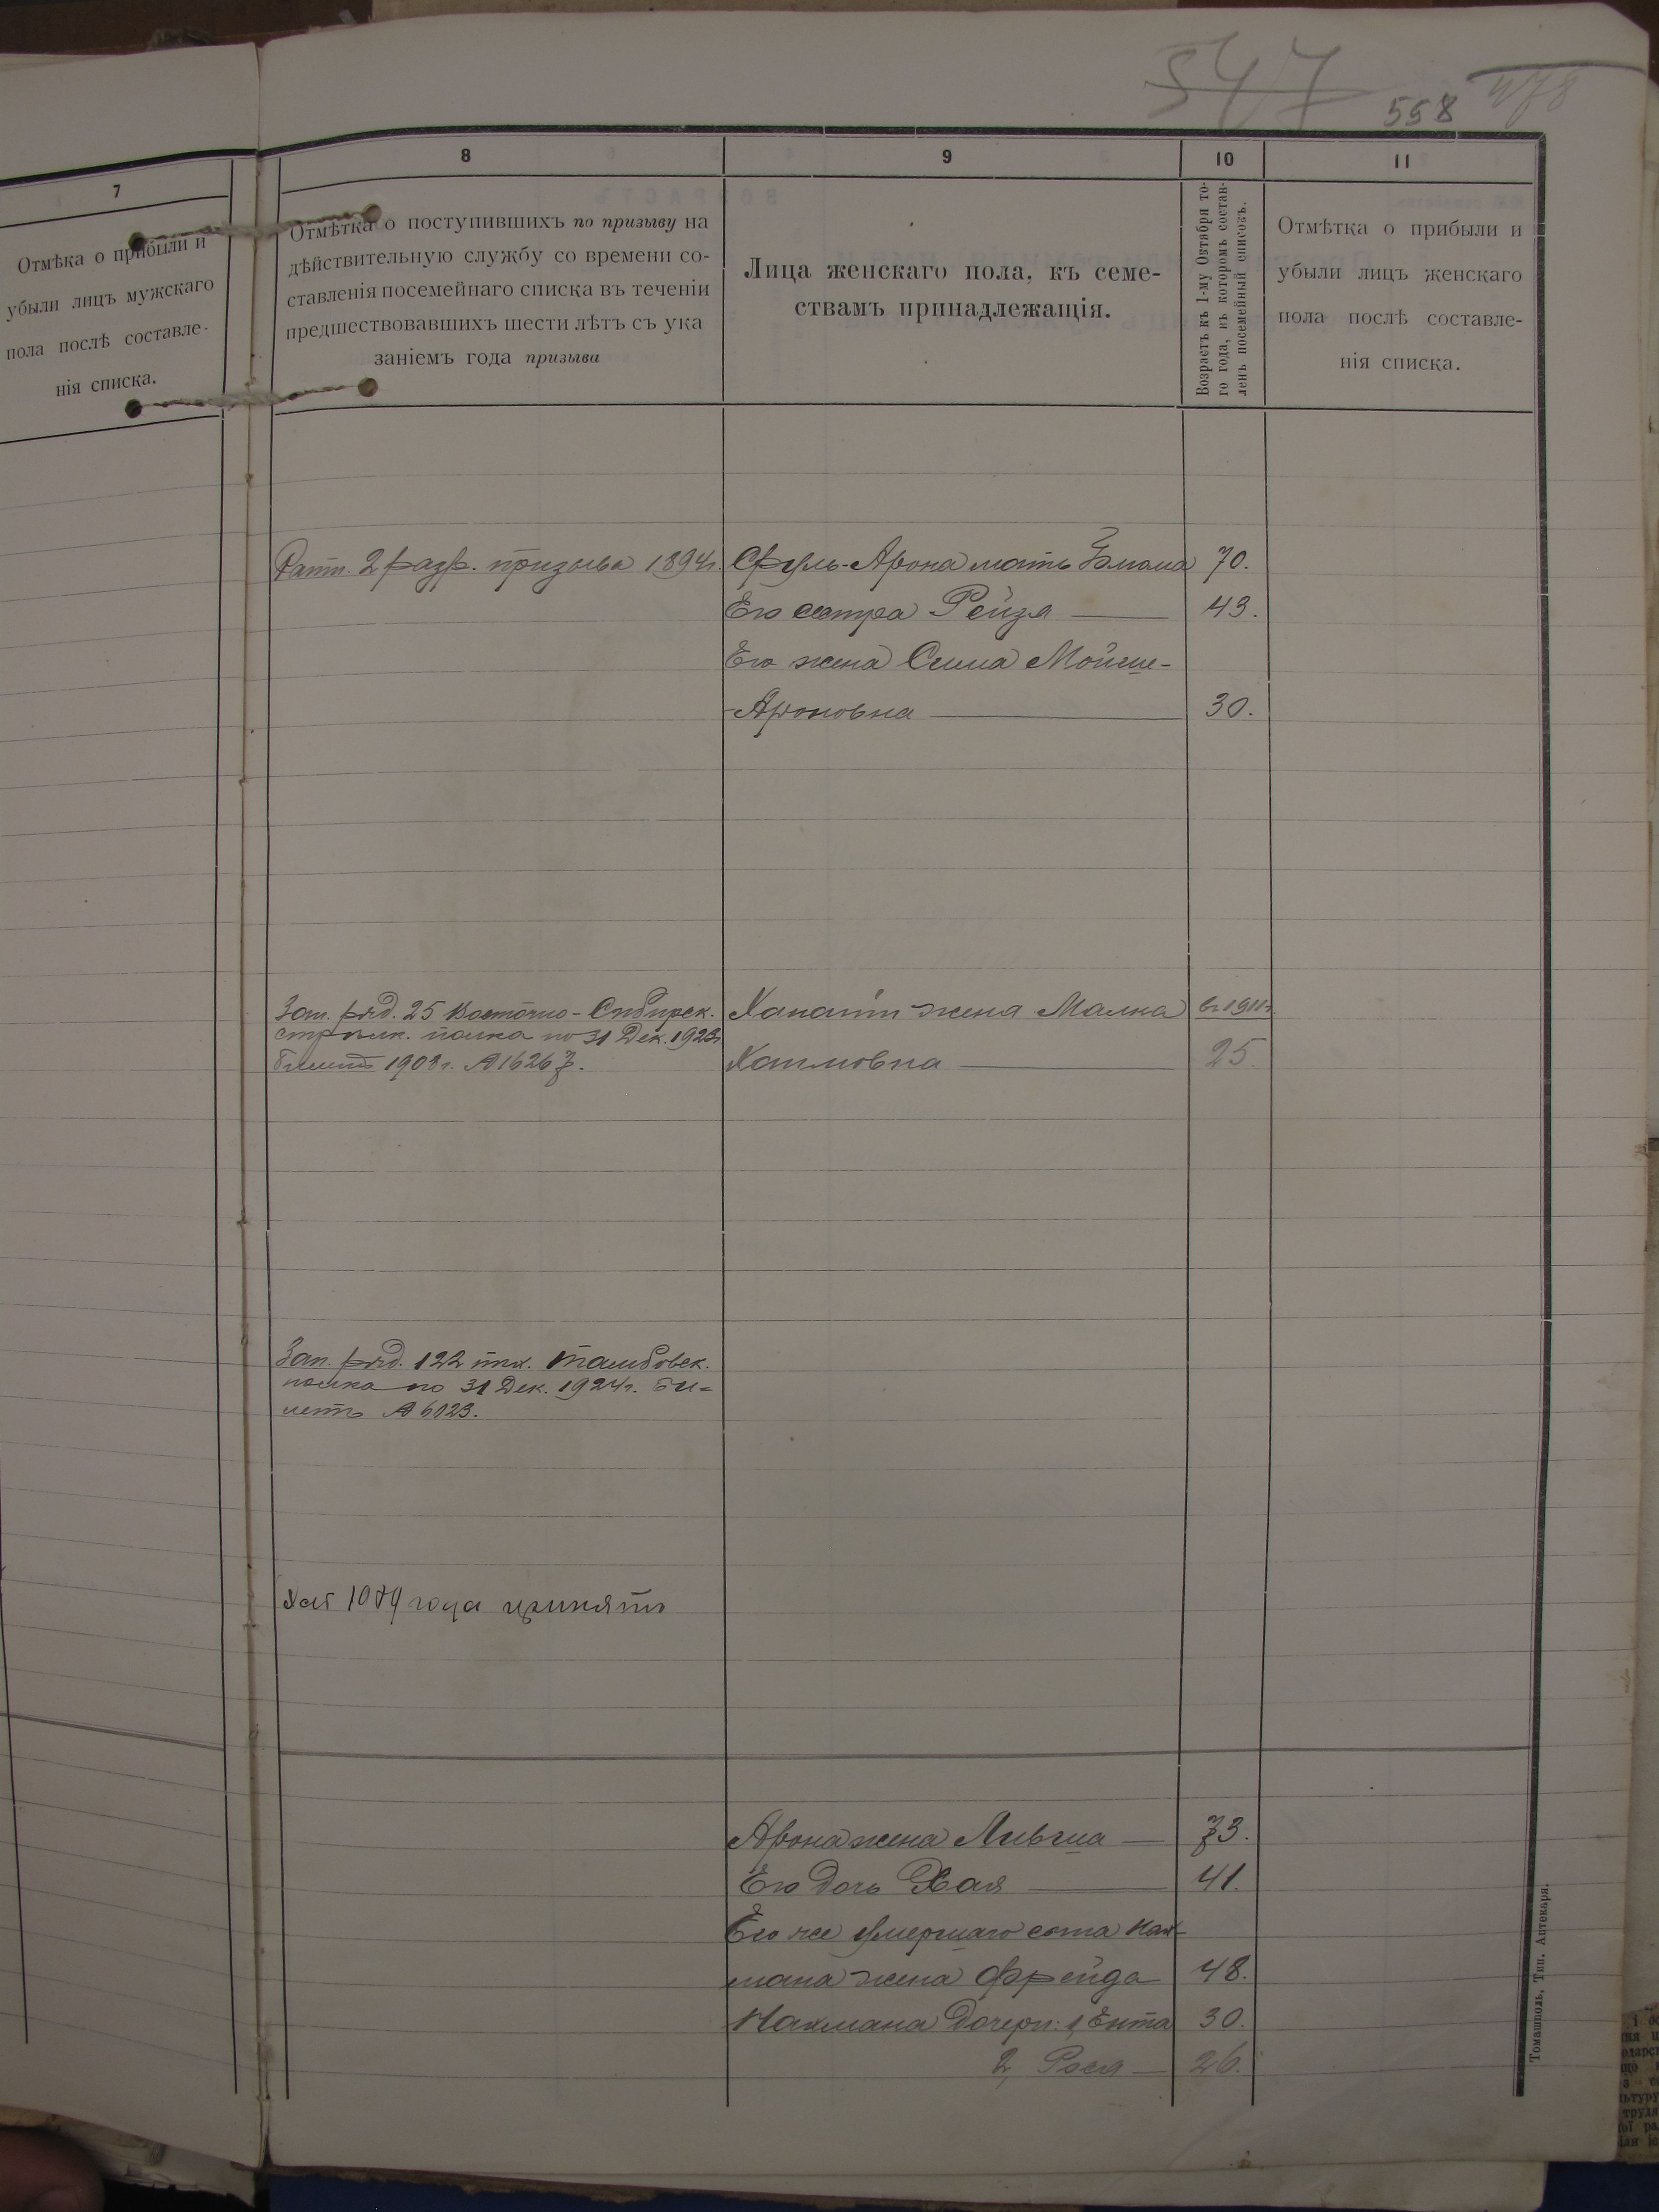 547
558
478
7
Отмѣка о прибыли и
убыли лицъ мужскаго
пола послѣ составле-
нія списка.
8
Отмѣтка о поступившихъ по призыву на
дѣйствительную службу со времени со-
ставленія посемейнаго списка въ теченіи
предшествовавшихъ шести лѣтъ съ ука
заніемъ года призыва
9
Лица женскаго пола, къ семе-
ствамъ принадлежащія.
10
Возрастъ къ 1-му Октября то-
го года, въ которомъ состав-
ленъ посемейный списокъ.
11
Отмѣтка о прибыли и
убыли лицъ женскаго
пола послѣ составле-
нія списка.
Ратн. 2 разр. призыва 1894г. Сруль-Арона мать 70.
Его сестра Рейзя 43.
Его жена Сима Мойше-
-Ароновна 30.
Зап. ряд. 25 Восточно-Сибирск. жена Малка въ 1911г.
стрѣлк. полка по 31 Дек. 1923г
билетъ 1908г. № 16267. Хаимовна 25.
Зап. ряд. 122 пѣх. Тамбовск.
полка по 31 Дек. 1924г. Би-
летъ № 6023.
года принятъ
Арона жена 73.
Его дочь Хая 41.
Его же умершаго сына Нах-
мана жена Фрейда 48.
Нахмана дочери: 1, Ента 30.
2, Рося 26.
Томашполь, Тип. Аптекаря.